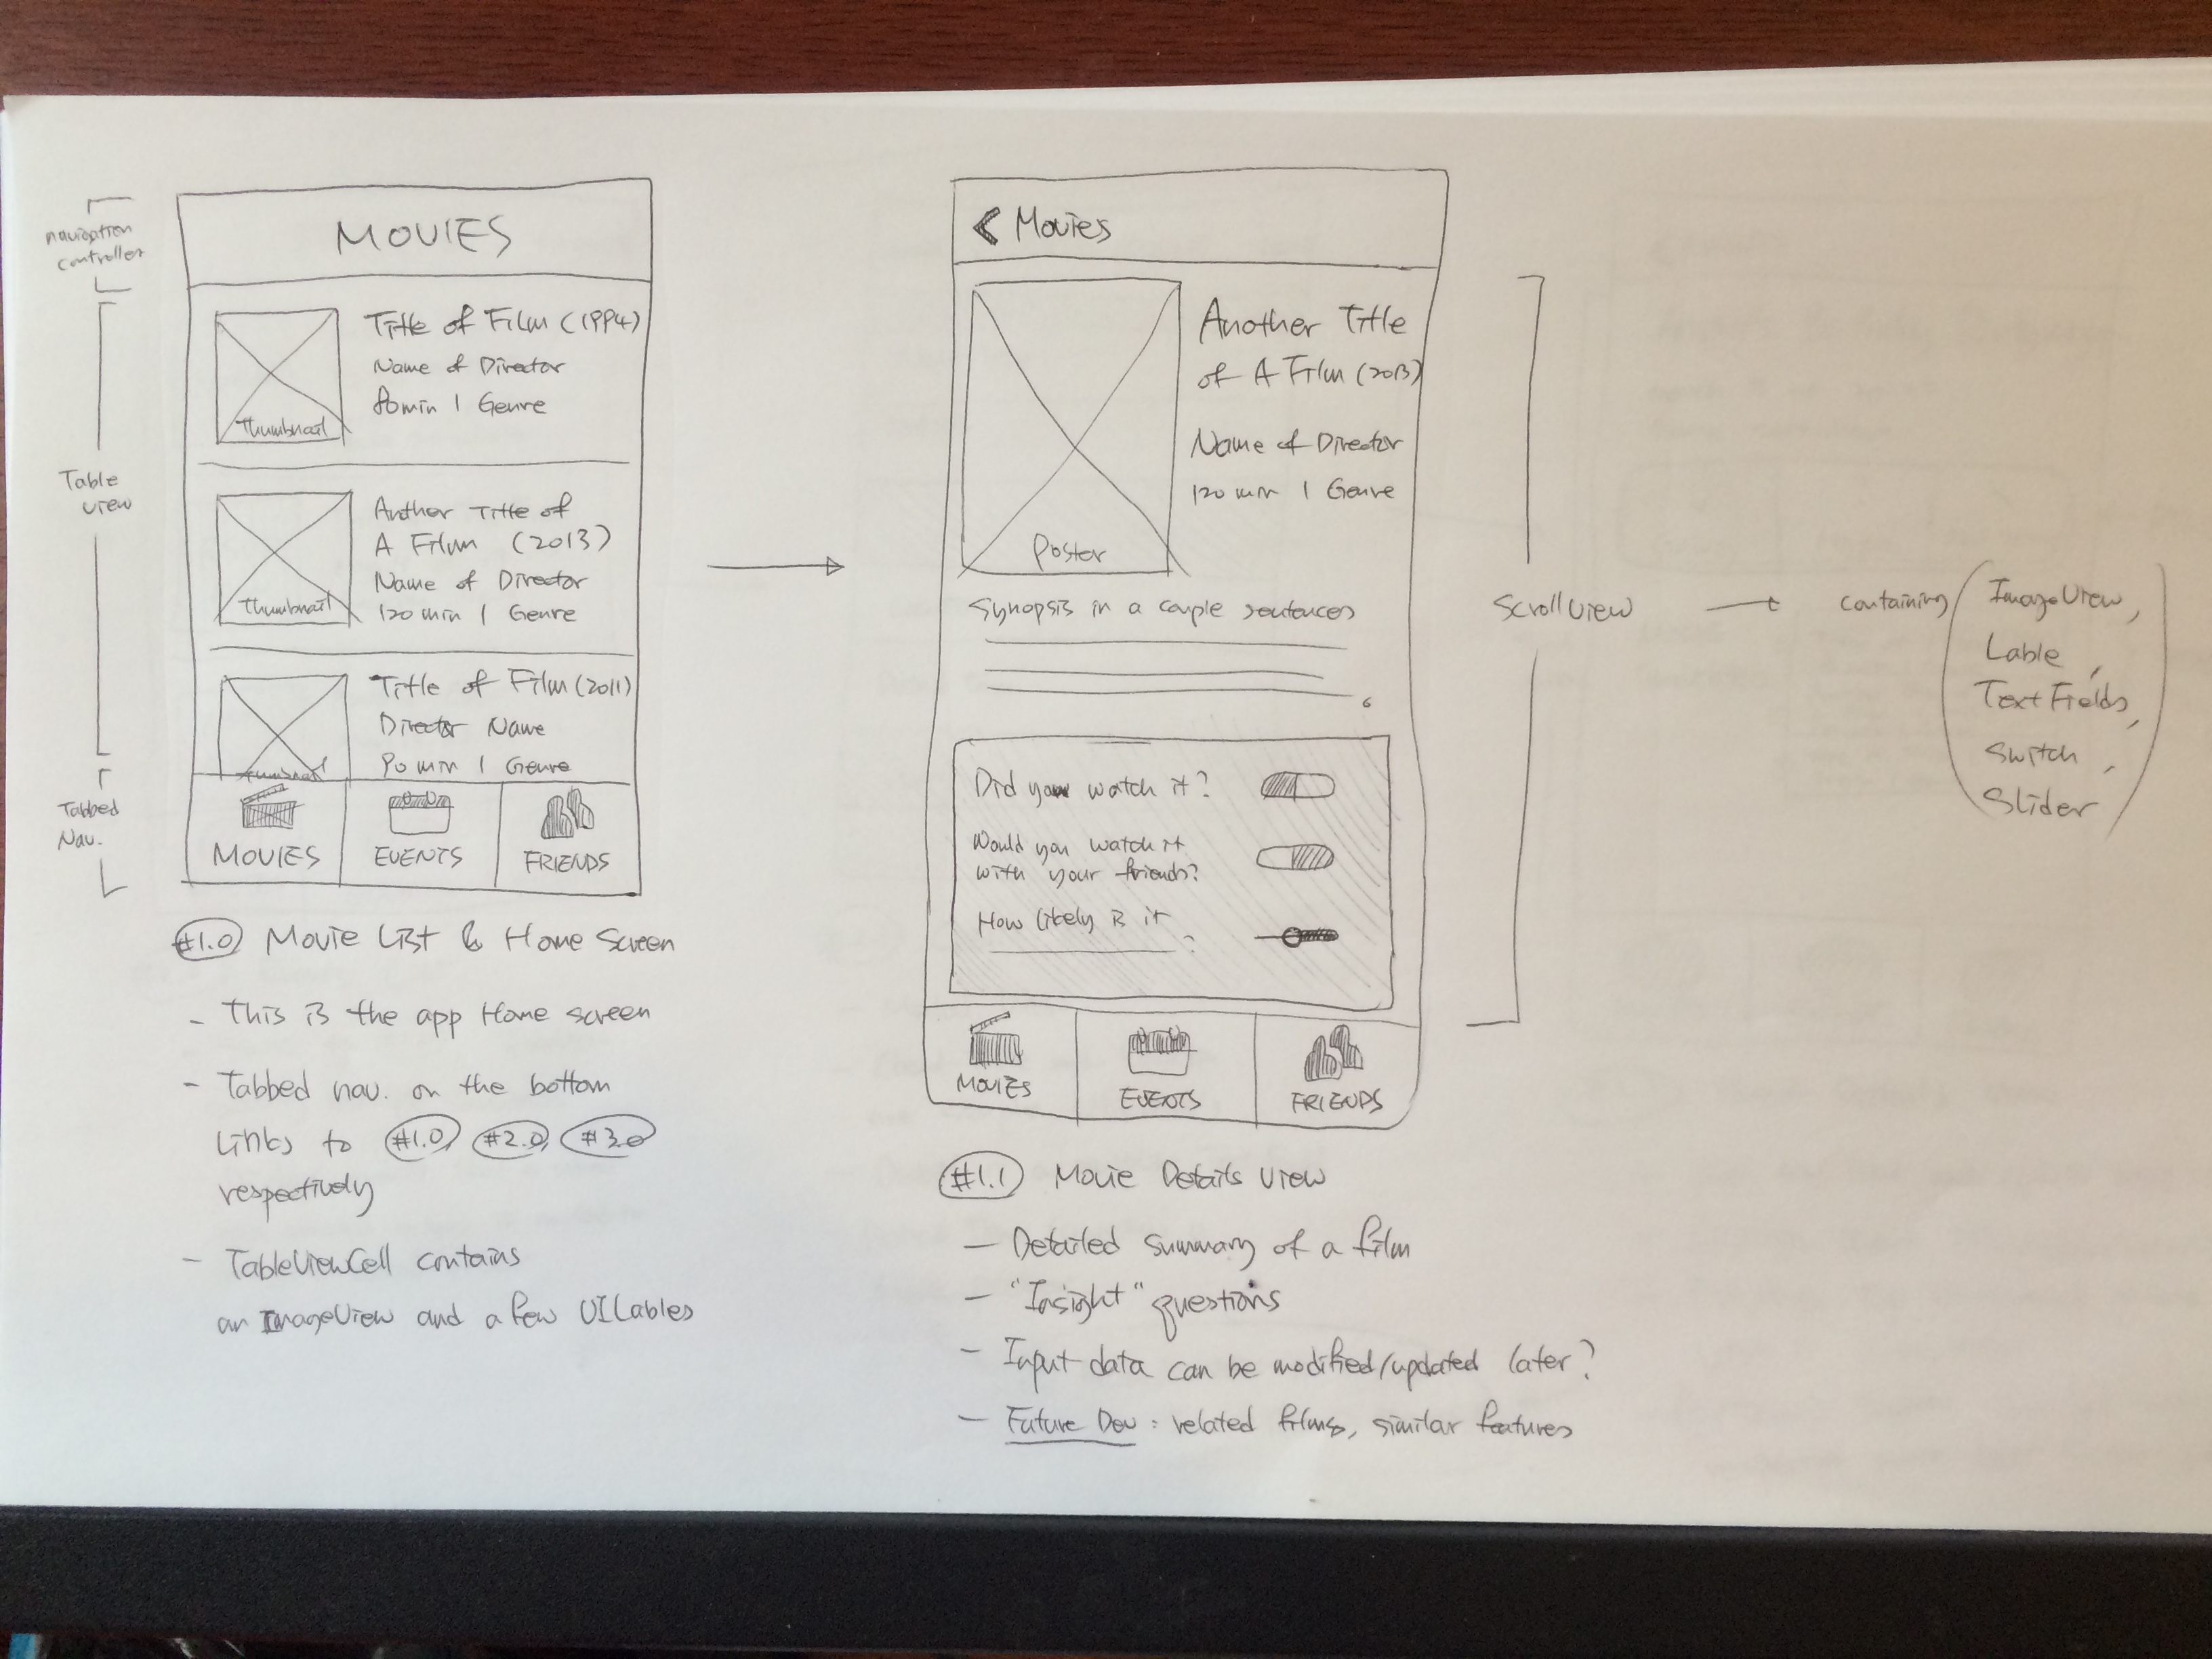 navigation
controller
Table
view
Tabbed
Nav.
MOVIES
Title of Film (1994)
Name of Director
80min | Genre
Thumbnail
Another Title of
A Film (2013)
Name of Director
120 min | Genre
Thumbnail
Title of Film (2011)
Director Name
90 min | Genre
Thumbnail
MOVIES
EVENTS
FRIENDS
#1.0 Movie List & Home Screen
- This is the app Home screen
- Tabbed nav. on the bottom
Links to #1.0, #2.0, #3.0
respectively
- TableViewCell contains
an ImageView and a few UILables
< Movies
Another Title
of A Film (2013)
Name of Director
120 min | Genre
Poster
Synopsis in a couple sentences
Did you watch it?
Would you watch it
with your friends?
How likely is it
?
MOVIES
EVENTS
FRIENDS
#1.1 Movie Details View
- Detailed summary of a film
- "Insight" questions
- Input data can be modified/updated later?
- Future Dev: related films, similar features
ScrollView → containing
(ImageView,
Lable,
TextFields,
Switch,
Slider)